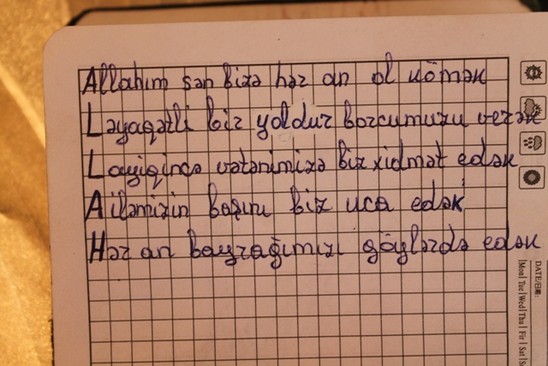 Allahım sən bizə hər an ol kömək
Ləyaqətli bir yoldur borcumuzu verək
Layiqincə vətənimizə biz xidmət edək
Ailəmizin başını biz uca edək
Hər an bayrağımızı göylərdə edək
DATE/日期:
Mon Tue Wed Thu Fir Sat